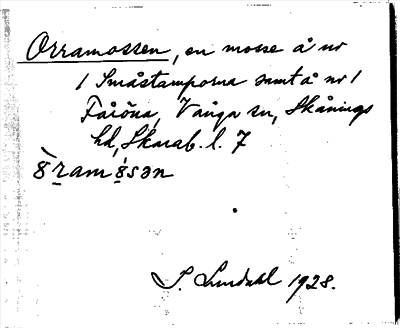 Orramossen, en mosse å nr
1 Småstamporna samt å nr 1
Fåröna, Vånga sn, Skånings
hd, Skarab. l. 7
S. Lundahl 1928.